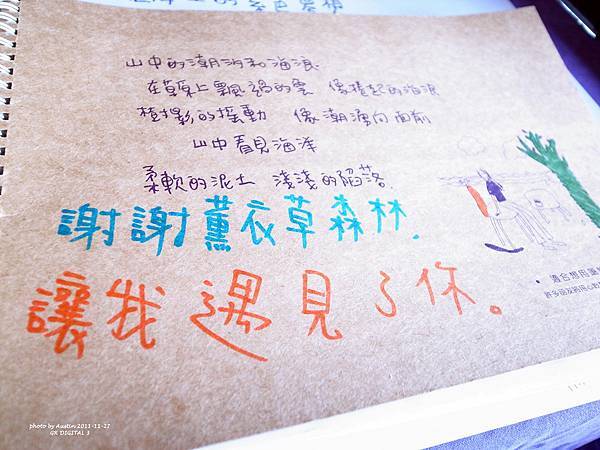 山中的潮汐和海浪
在草原上飄過的雲 像捲起的海浪
樹影的搖動 像潮湧向面前
山中看見海洋
柔軟的泥土 淺淺的陷落.
謝謝薰衣草森林.
讓我遇見了你。
適合想用
許多朋友將用心
photo by Austin 2011-11-27
GR DIGITAL 3